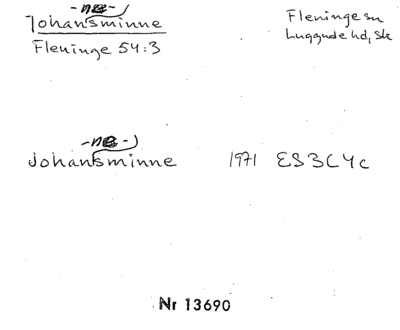 -ne-
Johansminne
Fleninge 54:3
Fleninge sn
Luggude hd, Sk
-ne-
Johansminne 1971 ES3C4c
Nr 13690